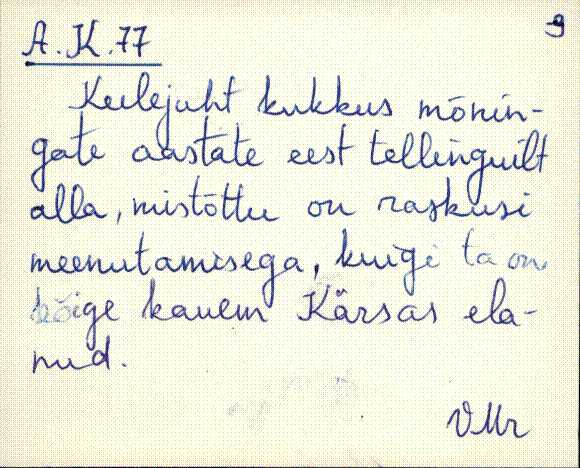 9
A.K.77
Keelejuht kukkus mõnin-
gate aastate eest tellinguilt
alla, mistõttu on raskusi
meenutamisega, kuigi ta on
kõige kauem Kärsas ela-
nud.
VMr